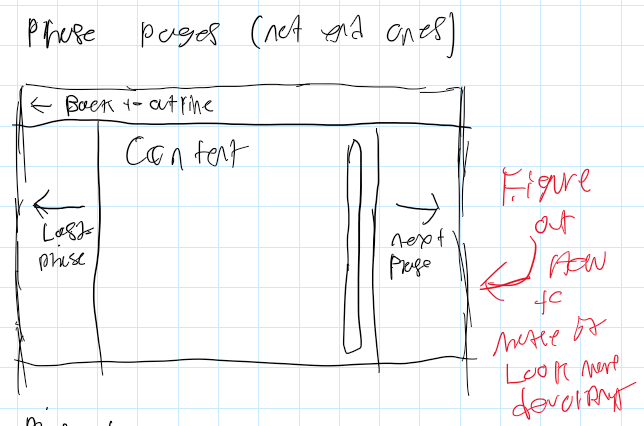 Phase pages (not end ones)
← Back to outline
Content
← Last phase
→ next Phase
Figure
out
how
to
make it
Look more